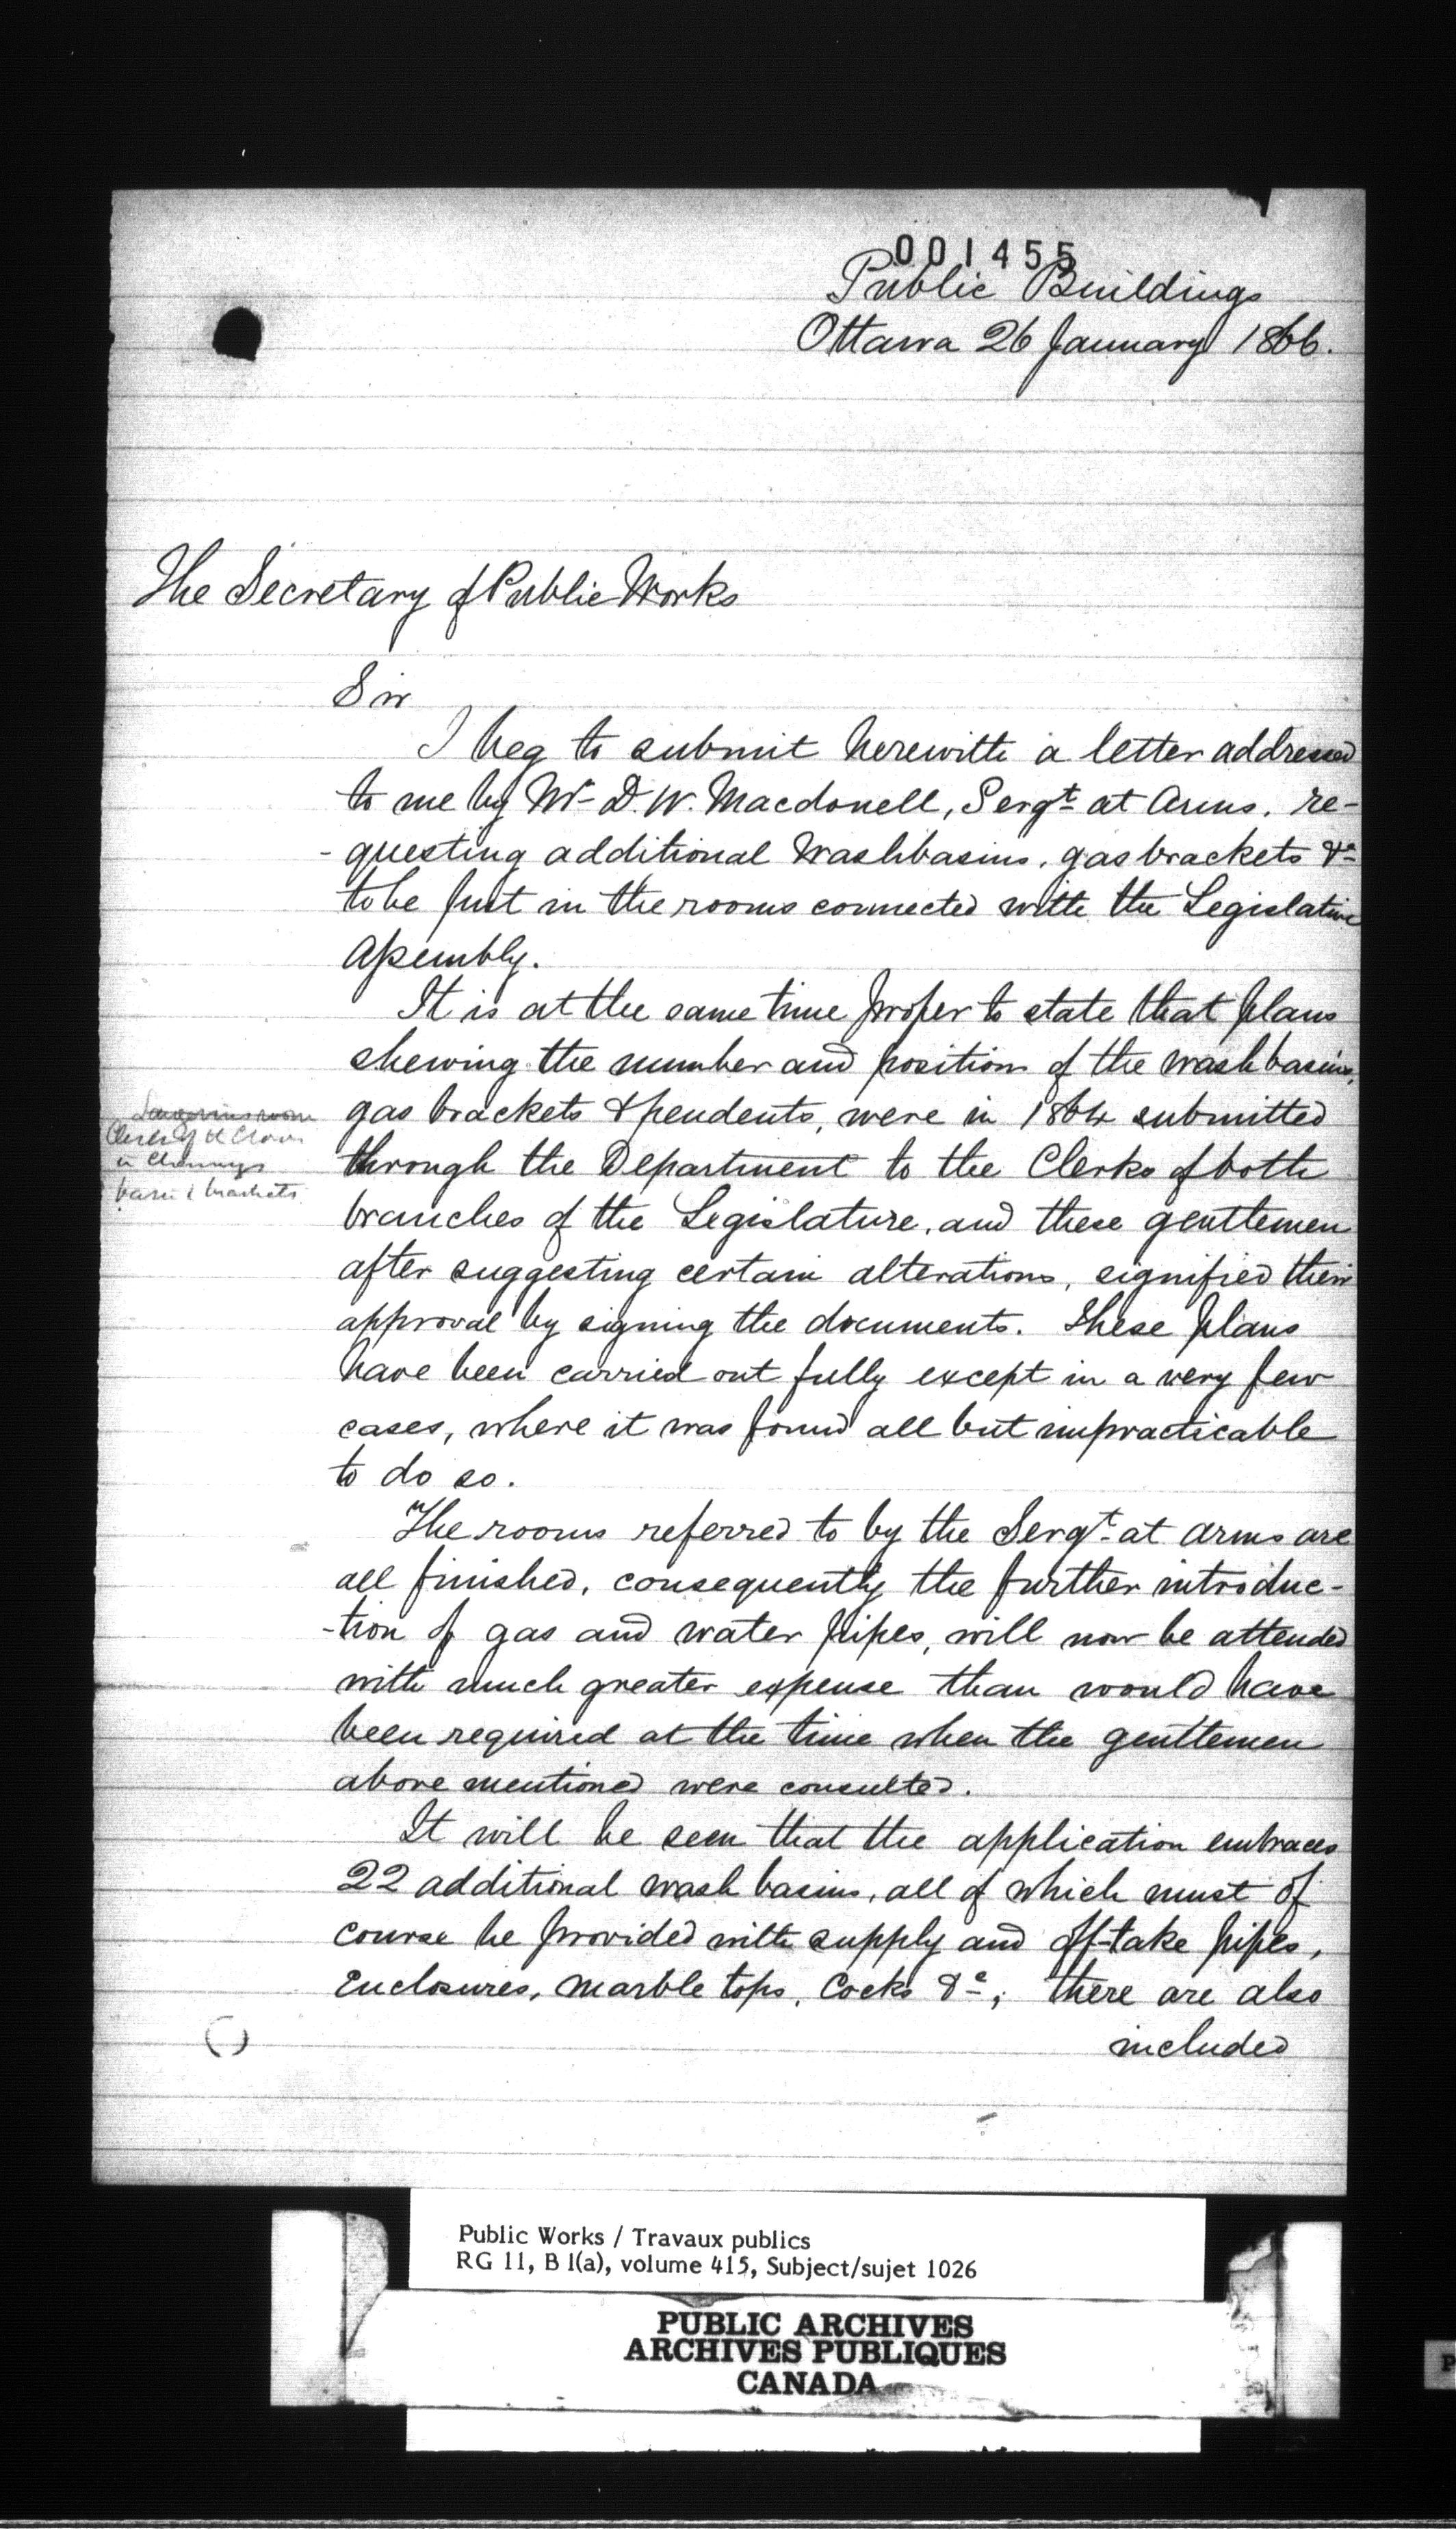 001455
Public Buildings
Ottawa 26 January 1866.
The Secretary of Public Works
Sir
I beg to submit herewith a letter addressed
to me by Mr D. W. Macdonell, Sergt at Arms, re-
-questing additional Washbasins, gas brackets &c
to be put in the rooms connected with the Legislative
Assembly.
It is at the same time proper to state that plans
shewing the number and position of the wash basins,
gas brackets & pendents, were in 1864 submitted
through the Department to the Clerks of both
branches of the Legislature, and these gentlemen
after suggesting certain alterations, signified their
approval by signing the documents. These plans
have been carried out fully except in a very few
cases, where it was found all but impracticable
to do so.
The rooms referred to by the Sergt at arms are
all finished, consequently the further introduc-
-tion of gas and water pipes, will now be attended
with much greater expense than would have
been required at the time when the gentlemen
above mentioned were consulted.
It will be seen that the application embraces
22 additional wash basins, all of which must of
course be provided with supply and off-take pipes,
Enclosures, marble tops, Cocks &c, there are also
included
room
basin & brackets
Public Works / Travaux publics
RG 11, B 1(a), volume 415, Subject/sujet 1026
PUBLIC ARCHIVES
ARCHIVES PUBLIQUES
CANADA
P